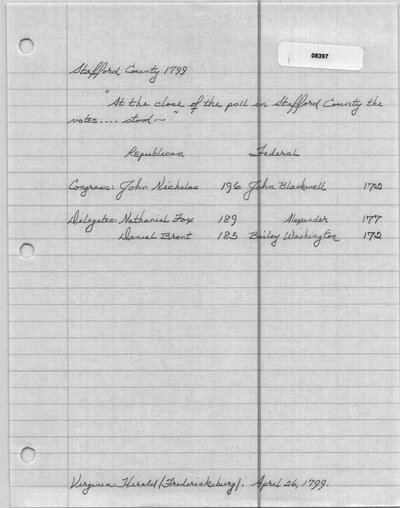 08397
Stafford County 1799
"At the close of the poll in Stafford County the
votes.... stood—"
Republican Federal
Congress: John Nicholas 196 John Blackwell 172
Delegates: Nathaniel Fox 189 Alexander 177
Daniel Brent 185 Bailey Washington 172
Virginia Herald (Fredericksburg). April 26, 1799.